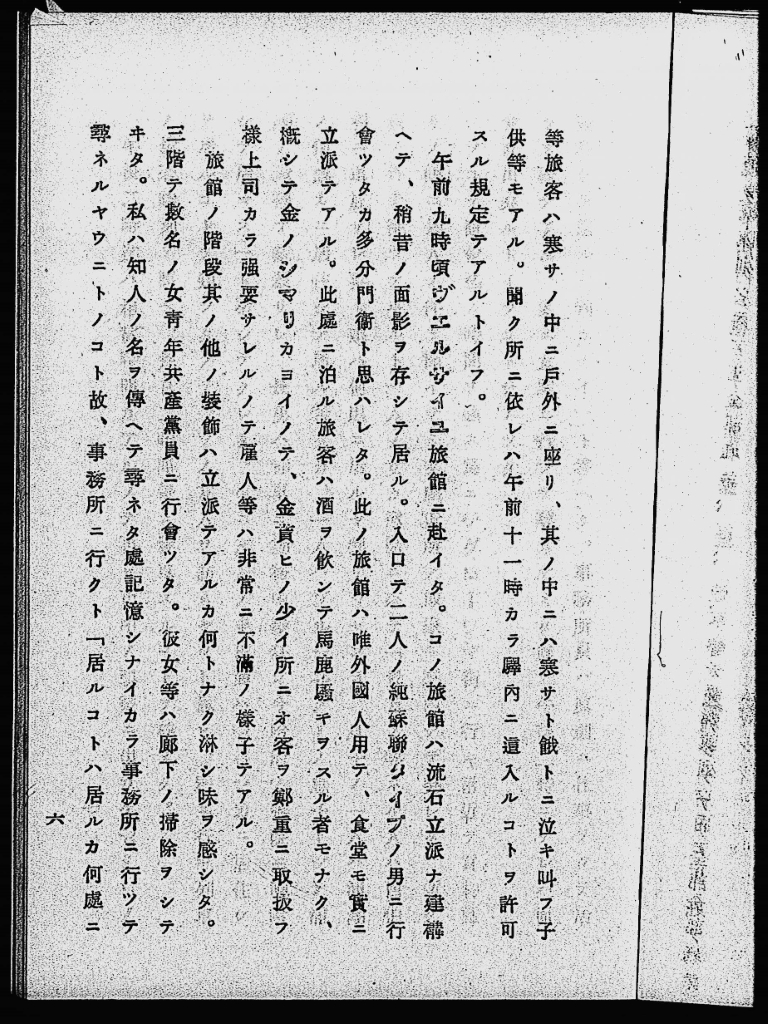 等旅客ハ寒サノ中ニ戸外ニ座リ、其ノ中ニハ寒サト餓トニ泣キ叫フ子
供等モアル。聞ク所ニ依レハ午前十一時カラ驛內ニ這入ルコトヲ許可
スル規定テアルトイフ。
午前九時頃ヴエルサイユ旅館ニ赴イタ。コノ旅館ハ流石立派ナ建構
ヘテ、稍昔ノ面影ヲ存シテ居ル。入口テ二人ノ純蘇聯タイプノ男ニ行
會ツタカ多分門衞ト思ハレタ。此ノ旅館ハ唯外國人用テ、食堂モ實ニ
立派テアル。此處ニ泊ル旅客ハ酒ヲ飮ンテ馬鹿騷キヲスル者モナク、
槪シテ金ノシマリカヨイノテ、金資ヒノ少イ所ニオ客ヲ鄭重ニ取扱フ
樣上司カラ强要サレルノテ雇人等ハ非常ニ不滿ノ樣子テアル。
旅館ノ階段其ノ他ノ裝飾ハ立派テアルカ何トナク淋シ味ヲ感シタ。
三階テ數名ノ女靑年共產黨員ニ行會ツタ。彼女等ハ廊下ノ掃除ヲシテ
ヰタ。私ハ知人ノ名ヲ傳ヘテ尋ネタ處記憶シナイカラ事務所ニ行ツテ
尋ネルヤウニトノコト故、事務所ニ行クト「居ルコトハ居ルカ何處ニ
六